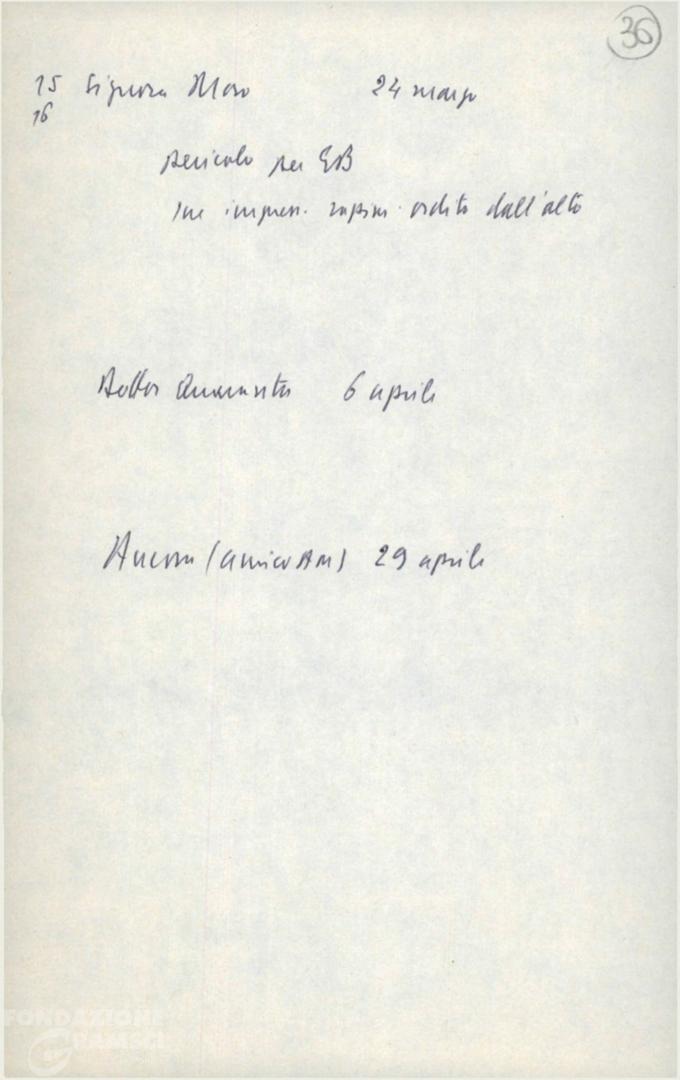 36
15 Signora Moro 24 marzo
16
pericolo per EB
sue impress. rapim. ordito dall'alto
Dottor Quaranta 6 aprile
Ancora (amico AM) 29 aprile
FONDAZIONE
GRAMSCI